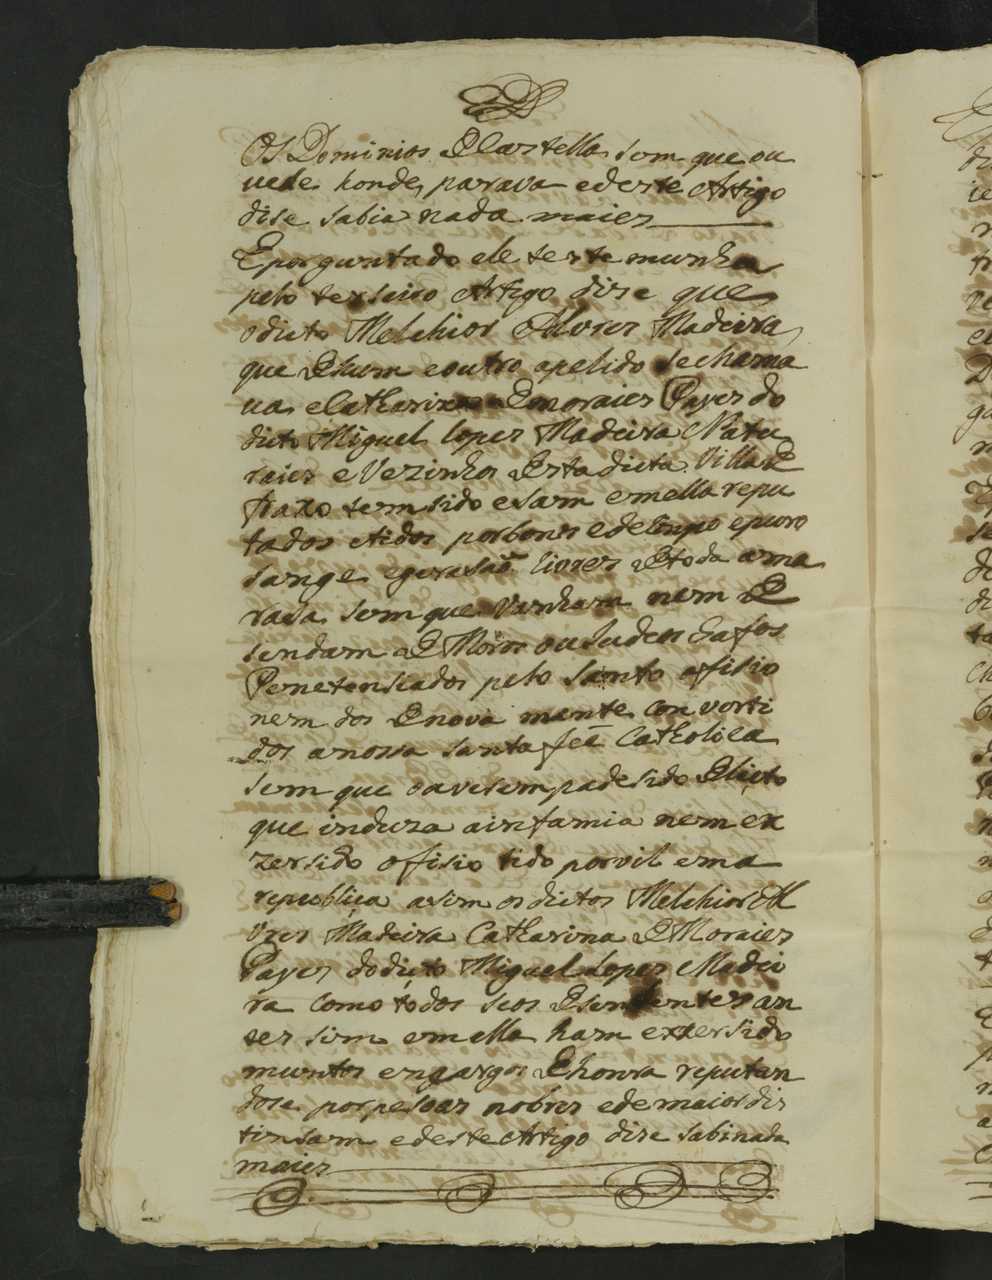 Os Dominios de Castella sem que ou
uese honde parava e deste Artigo
dise sabia nada maies
E porguntado ele testemunha
pelo terseiro Artigo dise que
o dicto Melchior Alvres Madeira,
que de hum e outro apelido se chama
ua, e Catharina de moraies Payes do
dicto Miguel lopes Madeira Natu
raies e Vezinhos desta dicta Villa de
fraxo tem sido e sam em ella repu
tados etidos por bonos e de limpo e puro
sange e gerasaõ liores de toda a ma
rasa sem que Vanham nem de
sendam de Moros ou Judeos hafos
Penetensiados pelo Santo offisio
nem dos de nova mente convorti
dos a nossa santa feê Catholica
sem que ouvesem padesido delicto
que induza a infamia nem ex
zersido offisio tido por vil em a
republica asim os dictos Melchior Al
vres Madeira Catharina de Moraies
Payes do dicto Miguel Lopes Madei
ra como tódos seos desendentes an
tes sim em ella ham exxersido
muntos engargos de honra reputan
dose por pesoas nobres e de maior dis
tinsam e deste Artigo dise sabi nada
maies